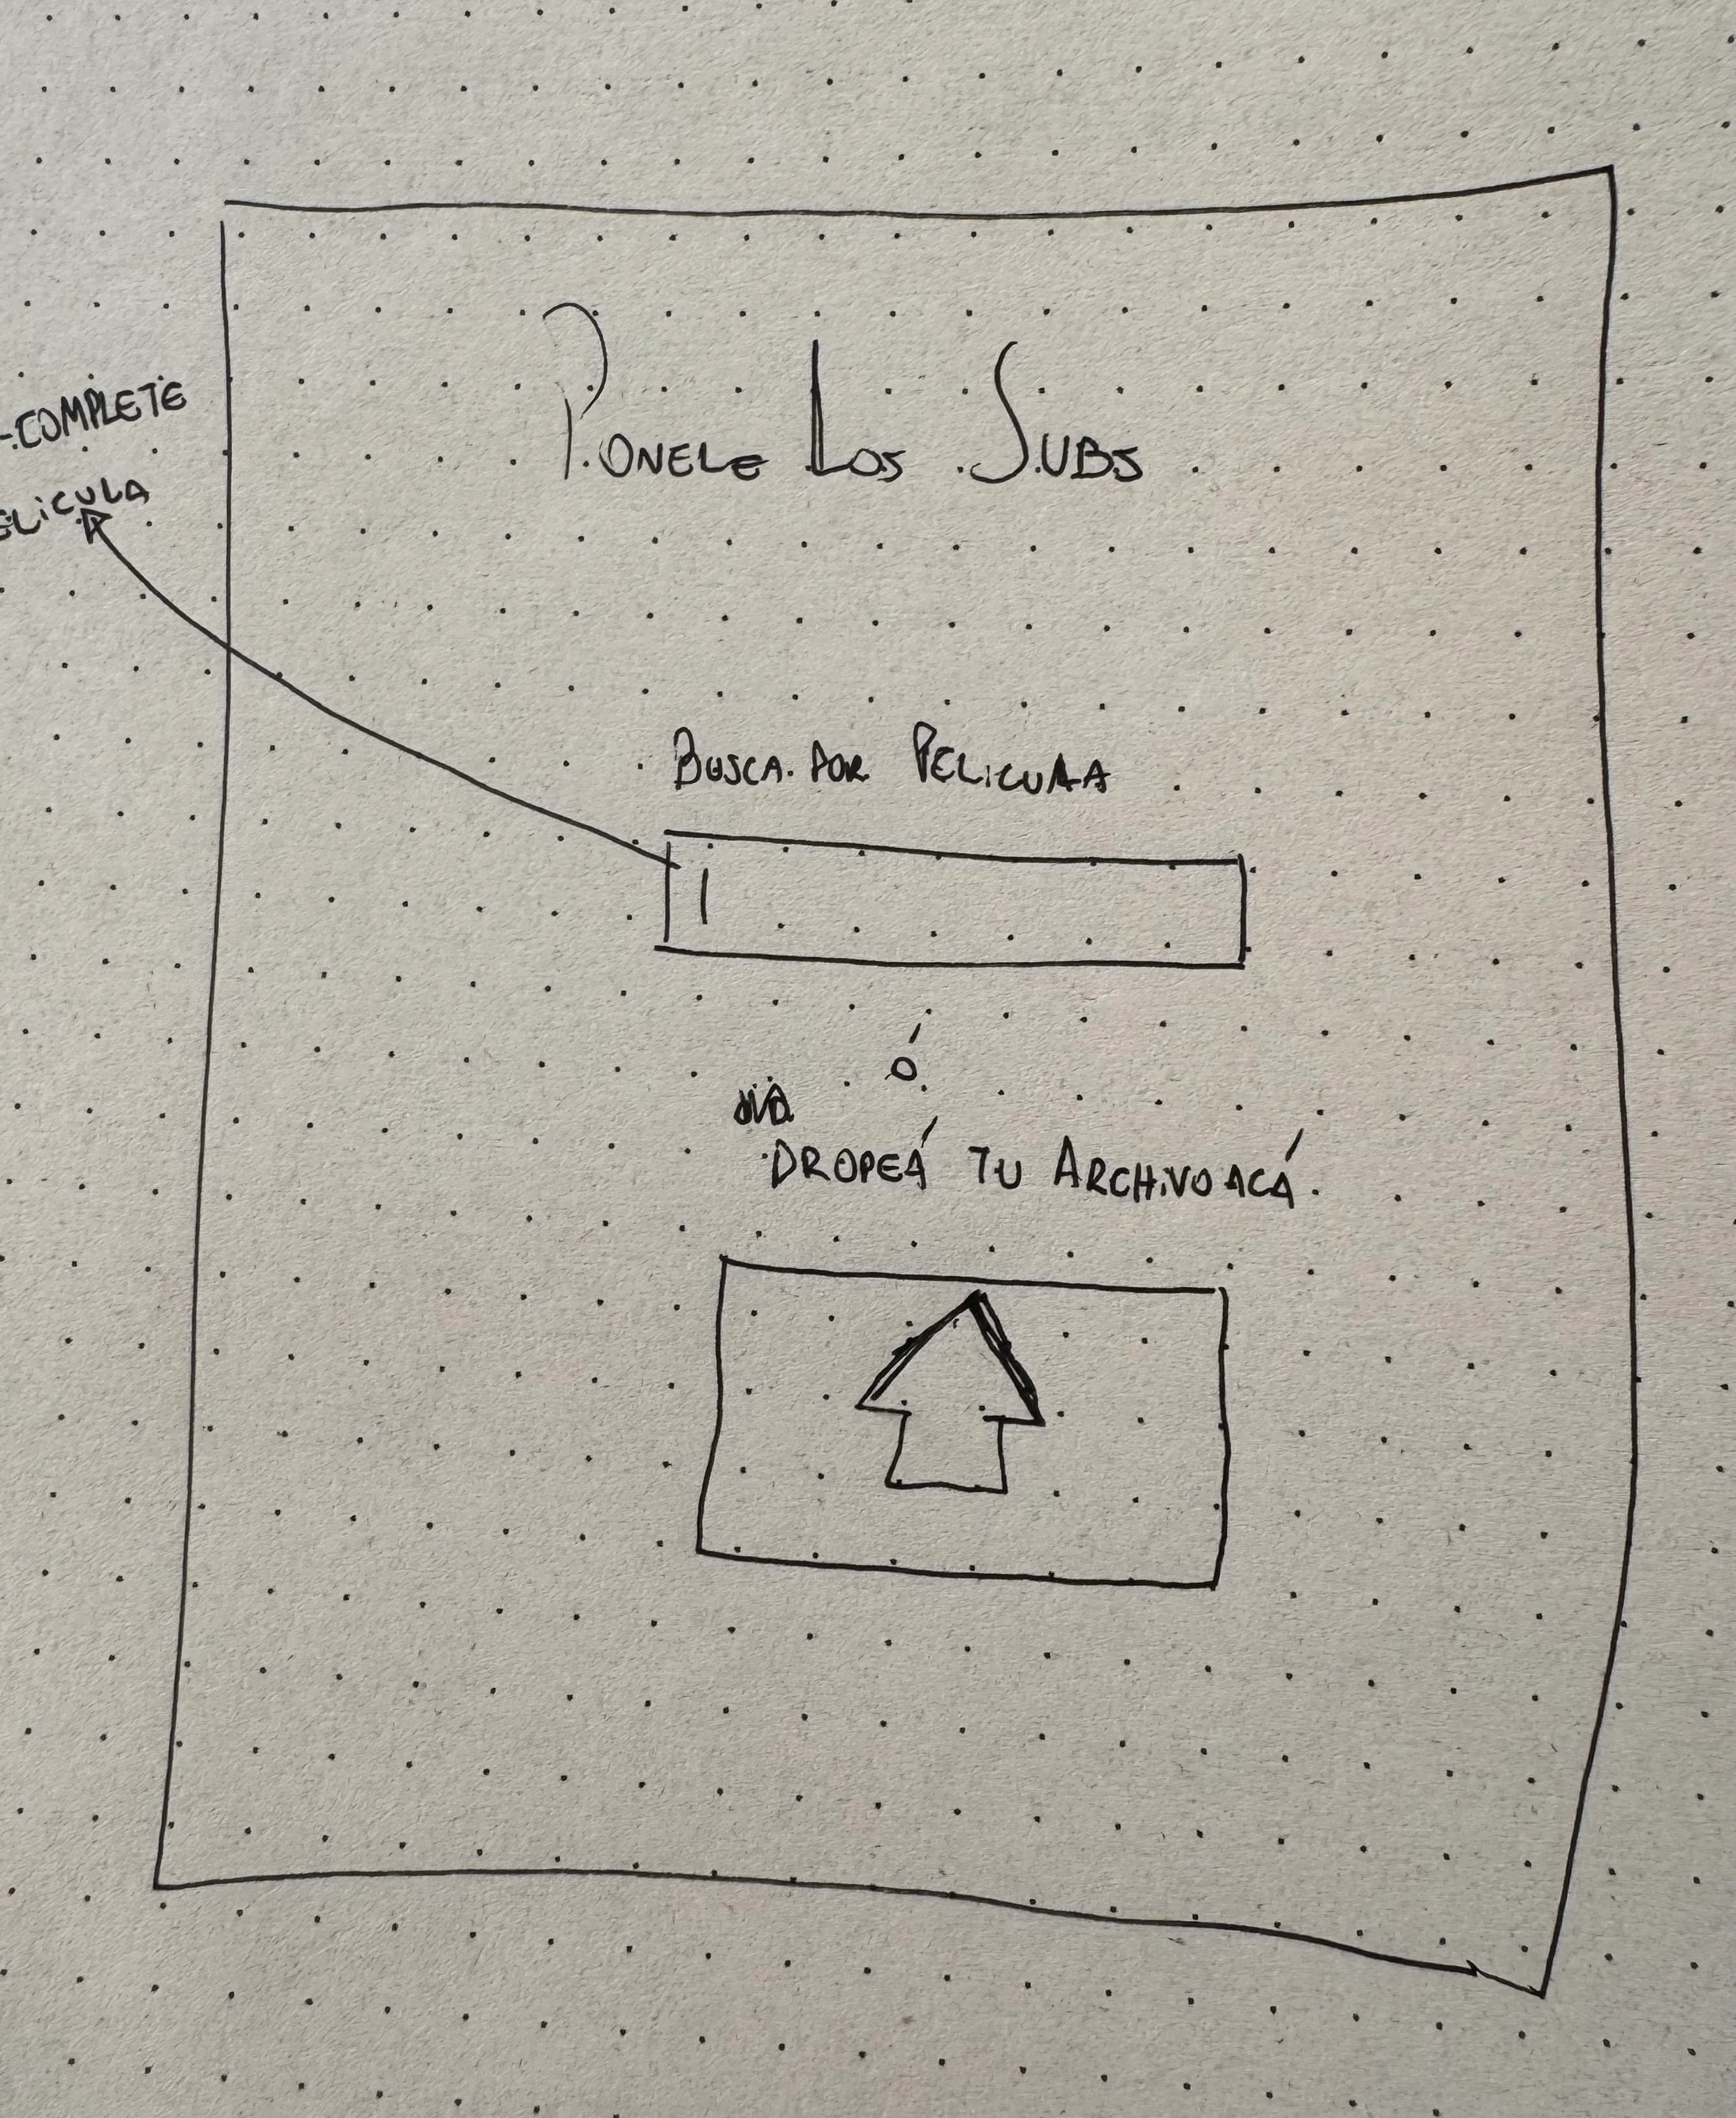 Ponele Los Subs
-COMPLETE
ELICULA
Busca por Pelicula
ó
DROPEÁ TU ARCHIVO ACÁ.